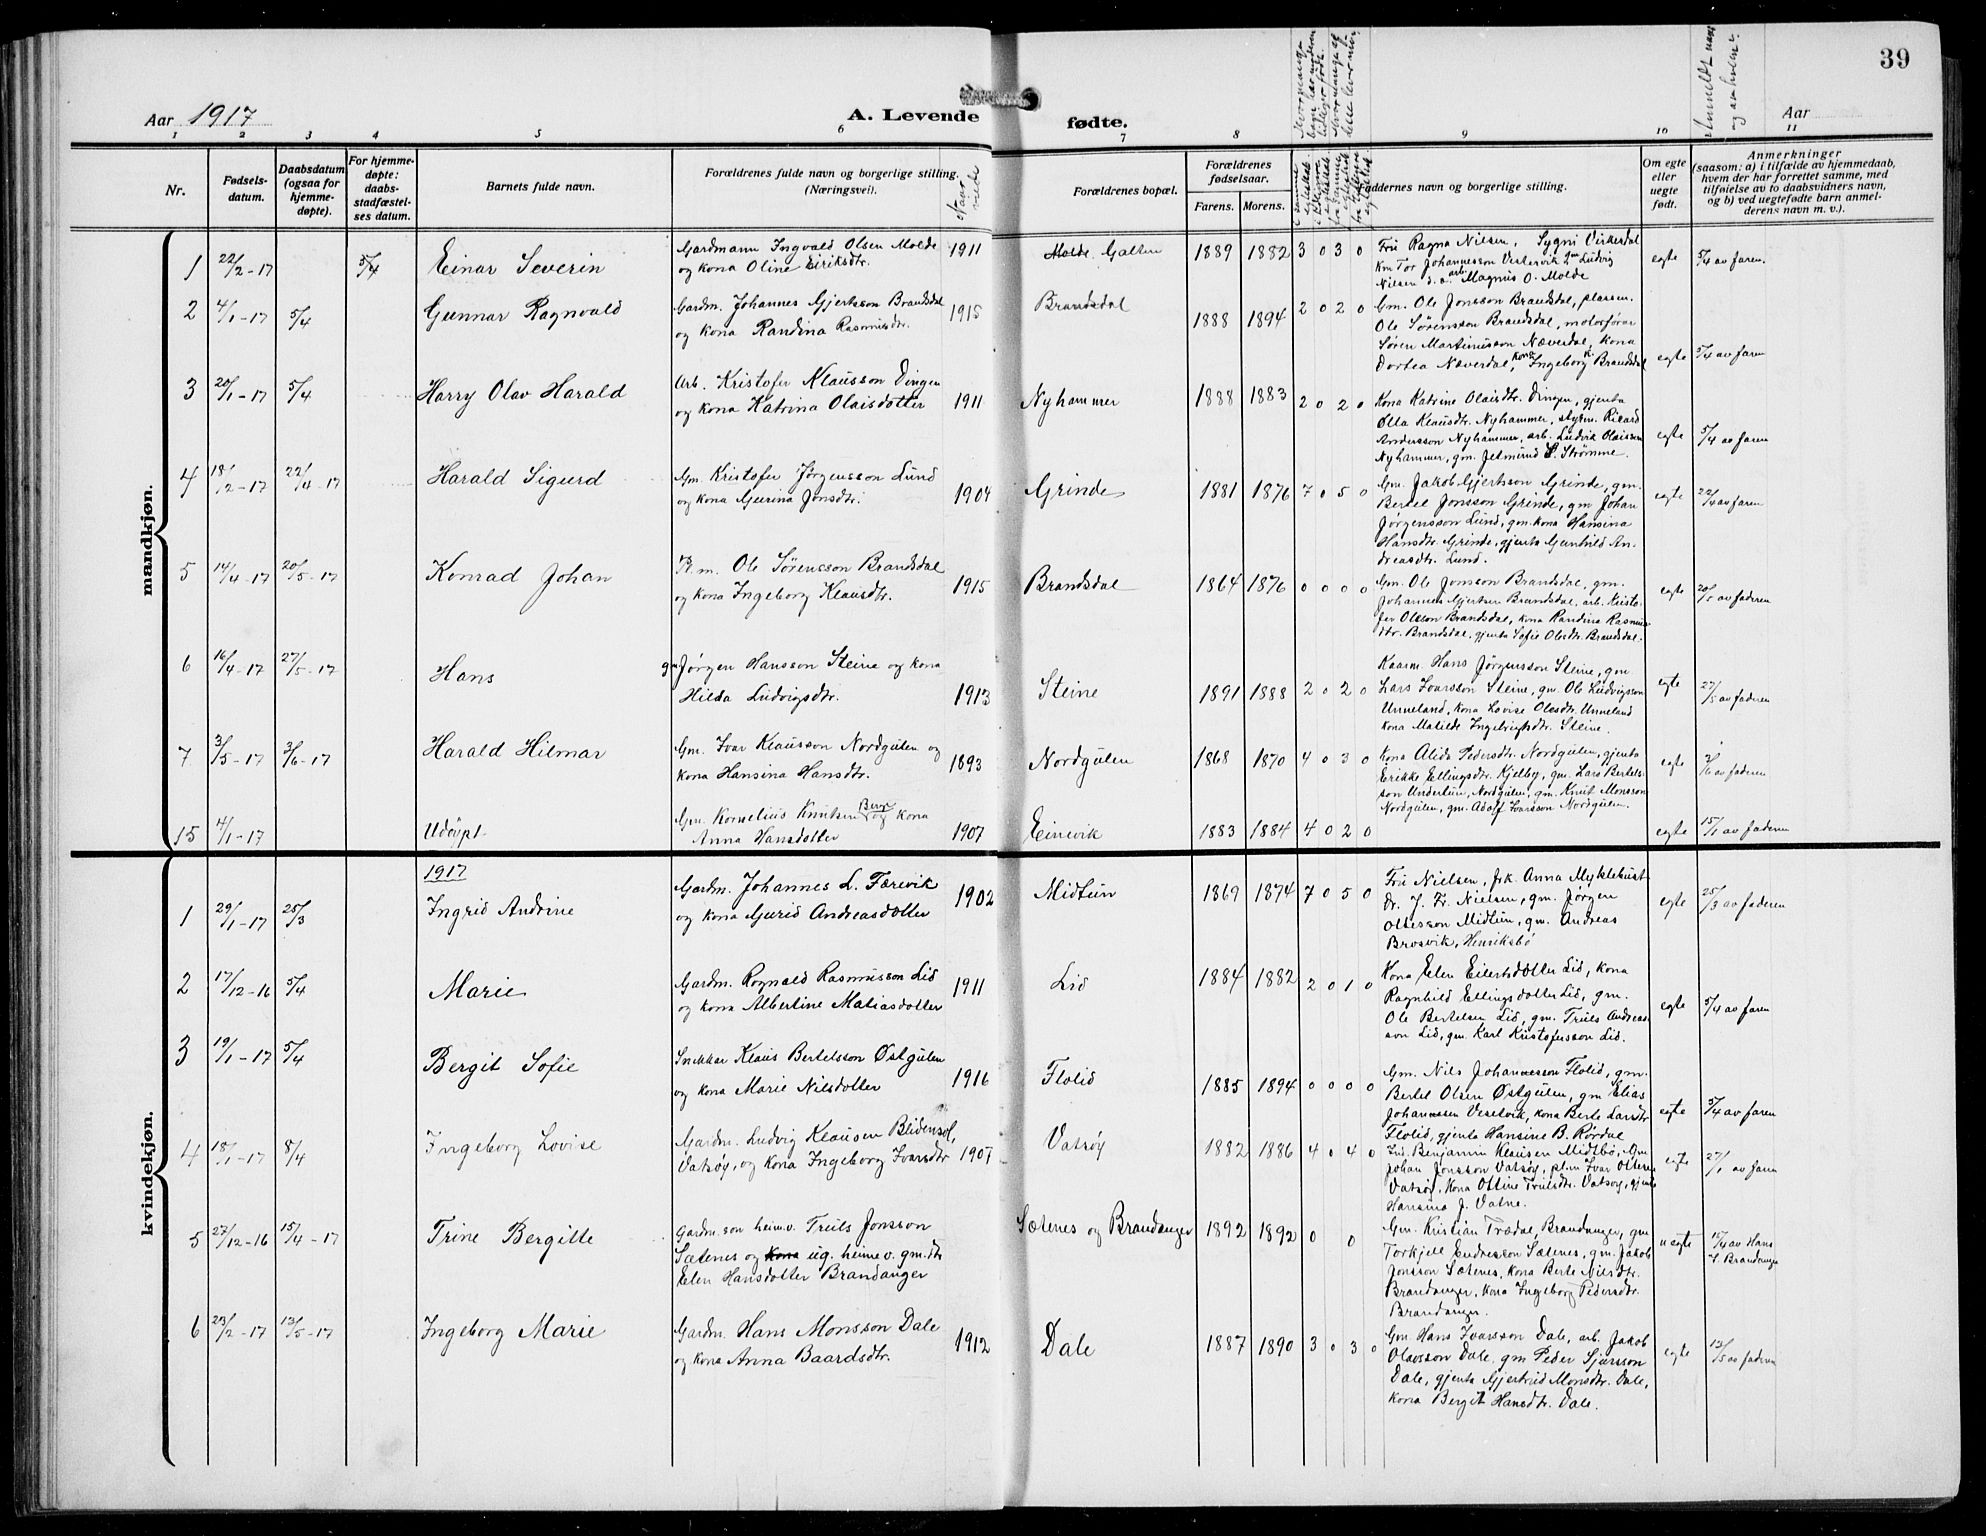 39
Aar 1917
A. Levende fødte.
Aar
1 2 3 4 5 6 7 8 9 10 11
Nr.
Fødsels-
datum.
Daabsdatum
(ogsaa for
hjemme-
døpte).
For hjemme-
døpte:
daabs-
stadfæstel-
ses datum.
Barnets fulde navn.
Forældrenes fulde navn og borgerlige stilling.
(Næringsvei).
Naar
viede
Forældrenes bopæl.
Forældrenes
fødselsaar.
Farens. Morens.
Faddernes navn og borgerlige stilling.
Om egte
eller
uegte
født.
Anmeldt naar
og av hvem
Anmerkninger
(saasom: a) i tilfælde av hjemmedaab,
hvem der har forrettet samme, med
tilføielse av to daabsvidners navn,
og b) ved uegtefødte barn anmel-
derens navn m. v.).
mandkjøn.
1 22/2-17 5/4 Einar Severin
Gardmann Ingvald Olsen Molde
og kona Oline Eiriksdtr.
1911 Molde Galten 1889 1882 3 0 3 0
Fru Ragna Nilsen, Sygni Virkesdal
Km Tor Johannesson Vestervik, gm Ludvig
Nilsen d. o. arb. Magnus O. Molde
egte 5/4 av faren.
2 4/1-17 5/4 Gunnar Ragnvald
Gardm. Johannes Gjertsson Brandsdal
og kona Randina Rasmusdtr.
1915 Brandsdal 1888 1894 2 0 2 0
Gm. Ole Jonsson Brandsdal, plassm.
Ole Sørensson Brandsdal, motorfører
Søren Martinusson Næverdal, kona
Dortea Næverdal, kona Ingeborg K. Brandsdal
egte 5/4 av faren
3 20/1-17 5/4 Harry Olav Harald
Arb. Kristofer Klausson Dingen
og kona Katrina Olaisdotter
1911 Nyhammer 1888 1883 2 0 2 0
Kona Katrine Olaisdtr. Dingen, gjenta
Olla Klausdtr. Nyhammer, styrm. Ricard
Andersson Nyhammer, arb. Ludvik Olaissen
Nyhammer, gm. Jetmund S. Strømme.
egte 5/4 av faren
4 18/2-17 22/4-17 Harald Sigurd
Gm. Kristofer Jørgensson Lund
og kona Gurina Jonsdtr.
1904 Grinde 1881 1876 7 0 5 0
Gm. Jakob Gjertsson Grinde, gm.
Bertel Jonsson Grinde, gm Johan
Jørgensson Lund, gm. kona Hansina
Hansdtr. Grinde, gjenta Gunhild An-
dreasdtr. Lund.
egte 22/4 av faren
5 14/4-17 20/5-17 Konrad Johan
Pl.m. Ole Sørensson Brandsdal
og kona Ingeborg Klausdtr.
1915 Brandsdal 1864 1876 0 0 0 0
Gm. Ole Jonsson Brandsdal, gm.
Johannes Gjertsen Brandsdal, arb. Kristo-
fer Olsson Brandsdal, kona Randina Rasmus-
dtr. Brandsdal, gjenta Sofie Olsdtr. Brandsdal.
egte 20/5 av faderen
6 16/4-17 27/5-17 Hans
gm Jørgen Hansson Steine og kona
Hilda Ludvigsdtr.
1913 Steine 1891 1888 2 0 2 0
Kaarm. Hans Jørgensson Steine, gm.
Lars Ivarsson Steine, gm. Ole Ludvigsson
Unneland, kona Lovise Olesdtr. Unneland
kona Matilde Ingebrigtsdtr. Steine.
egte 27/5 av faderen
7 3/5-17 3/6-17 Harald Hilmar
Gm. Ivar Klausson Nordgulen og
kona Hansina Hansdtr.
1893 Nordgulen 1868 1870 4 0 3 0
Kona Alida Pedersdtr. Nordgulen, gjenta
Erikke Ellingsdtr. Kjelby, gm. Lars Bertels-
son Undertun, Nordgulen, gm. Knut Monsson
Nordgulen, gm. Adolf Ivarsson Nordgulen.
egte 3/6 av faderen
15 4/1-17 Udøypt
Gm. Kornelius Knutsen Berge og kona
Anna Hansdotter
1907 Einevik 1883 1884 4 0 2 0
egte 15/1 av faderen
kvindekjøn.
1917
1 29/1-17 25/3 Ingrid Andrine
Gardm. Johannes L. Færevik
og kona Gurid Andreasdotter
1902 Midtun 1869 1874 7 0 5 0
Fru Nielsen, frk. Anna Myklebust
Dr. J. Fr. Nielsen, gm. Jørgen
Ottesson Midtun, gm. Andreas
Brosvik, Henriksbø
egte 25/3 av faderen
2 17/12-16 5/4 Marie
Gardm. Rognald Rasmusson Lid
og kona Albertine Matiasdotter
1911 Lid 1884 1882 2 0 1 0
Kona Elen Eilertsdotter Lid, kona
Ragnhild Ellingsdotter Lid, gm.
Ole Bertelsen Lid, gm. Truls Andreas-
son Lid, gm. Karl Kristofersson Lid.
egte 5/4 av faren
3 19/1-17 5/4 Bergit Sofie
Snekkar Klaus Bertelsson Østgulen
og kona Marie Nilsdotter
1916 Flolid 1885 1894 0 0 0 0
Gm. Nils Johannesson Flolid, gm.
Bertel Olsen Østgulen, gm Elias
Johannessen Vesetvik, kona Berte Larsdtr
Flolid, gjenta Hansine B. Rørdal
egte 5/4 av faren
4 18/1-17 8/4 Ingeborg Lovise
Gardm. Ludvig Klausen Blidensol,
Vatsøy, og kona Ingeborg Ivarsdtr
1907 Vatsøy 1882 1886 4 0 4 0
Ind. Benjamin Klausen Midtbø, Gm
Johan Jonsson Vatsøy, pl.m Ivar Ottesen
Vatsøy, kona Ottine Trulsdtr. Vatsoy, gjenta
Hansina J. Vatne.
egte 27/1 av faren
5 27/12-16 15/4-17 Trine Bergitte
Gardm. son heimv. Truls Jonsson
Sætenes og kona ug. heimv. gm.dtr
Elen Hansdotter Brandanger
Sætenes og Brandanger 1892 1892 0 0
Gm. Kristian Trædal, Brandanger, gm
Torkjell Endresson Sætenes, gm. Jakob
Jonsson Sætenes, kona Berte Nilsdtr.
Brandanger, kona Ingeborg Pedersdtr.
Brandanger.
uegte 15/4 av Hans
I. Brandanger
6 23/2-17 13/5-17 Ingeborg Marie
Gardm. Hans Monsson Dale
og kona Anna Baardsdtr.
1912 Dale 1887 1890 3 0 3 0
Gm. Hans Ivarsson Dale, arb. Jakob
Olavsson Dale, gm Peder Sjursson
Dale, gjenta Gjertrud Monsdtr. Dale,
kona Bergit Hansdtr. Dale.
egte 13/5 av faderen